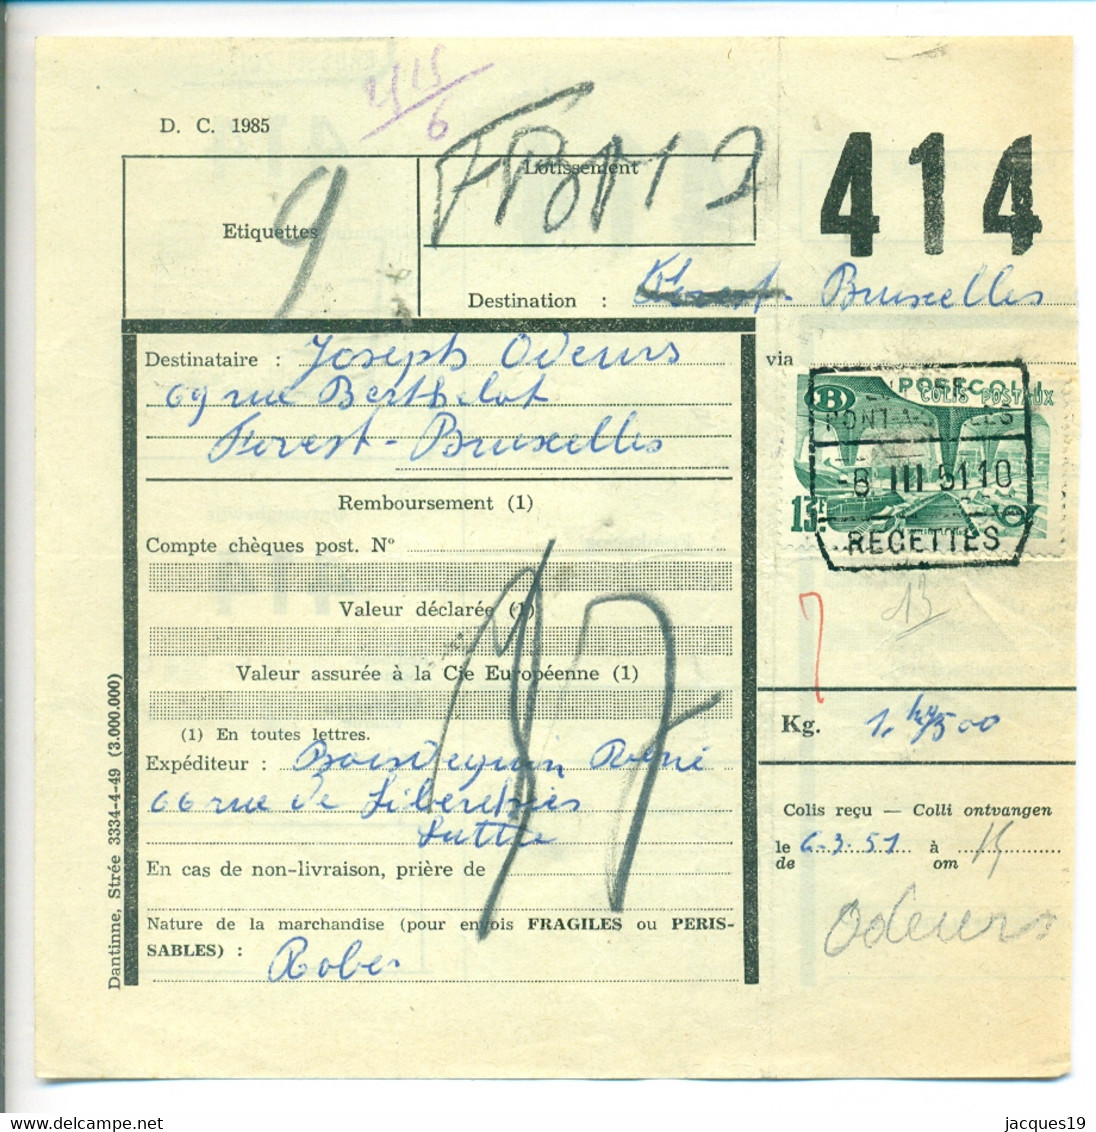 415
6
D. C. 1985
414
Lotissement
Etiquettes
9
Destination : Forest - Bruxelles
Destinataire : Joseph Odeurs
via
69 rue Berthelot
Forest - Bruxelles
B POSTCOLLI
COLIS POSTAUX
13F
-8 III 51 10
RECETTES
13
Remboursement (1)
Compte chèques post. N°
Valeur déclarée (1)
Valeur assurée à la Cie Européenne (1)
(1) En toutes lettres.
Kg. 1. 500
Expéditeur : René
66 rue de
Luttre
Colis reçu — Colli ontvangen
le 6.3.51 à 15
de om
En cas de non-livraison, prière de
Odeurs
Nature de la marchandise (pour envois FRAGILES ou PERIS-
SABLES) :
Robes
Dantinne, Strée 3334-4-49 (3.000.000)
jacques19